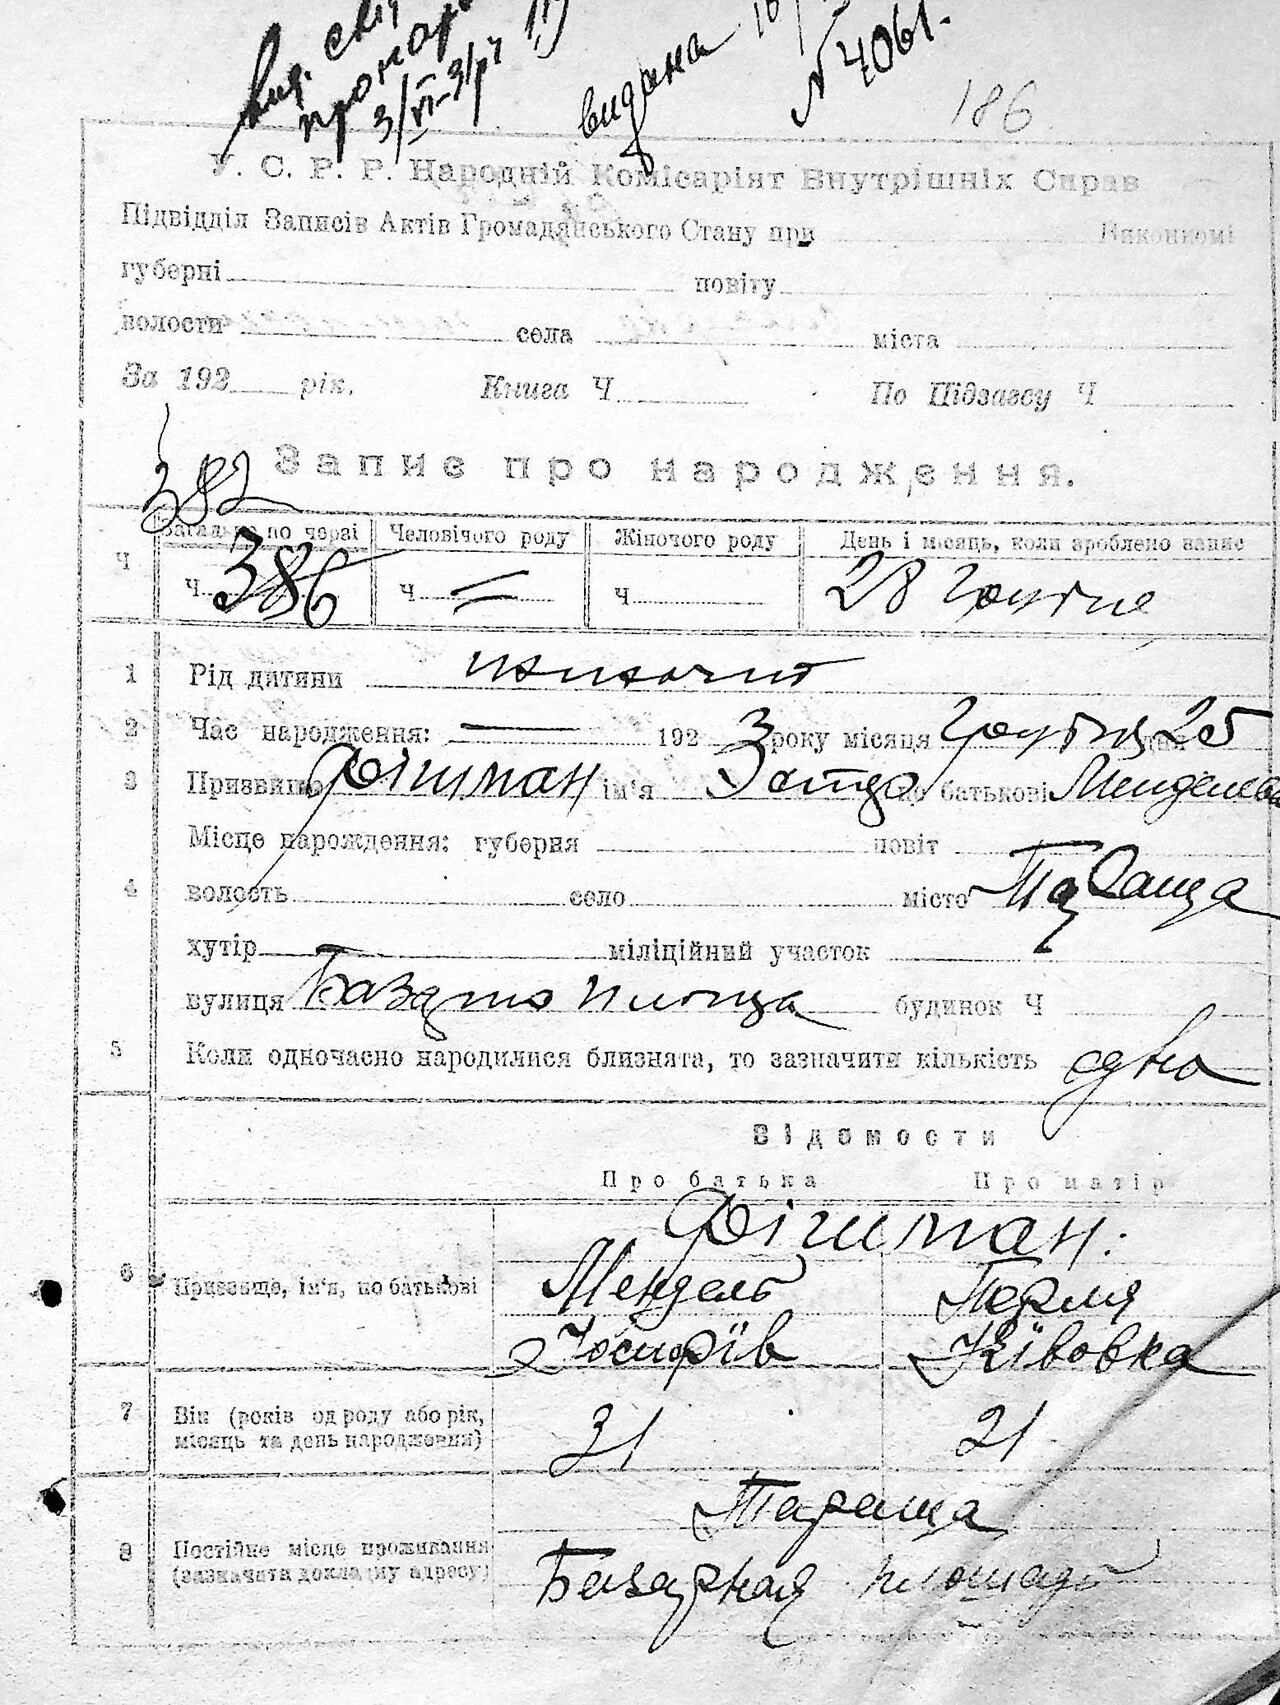 вид. свід
про нар
3/VI-31р
видана
№ 4061.
186
У. С. Р. Р. Народній Комісаріят Внутрішніх Справ
Підвідділ Записів Актів Громадянського Стану при Виконкомі
губерні повіту
волости села міста
За 192 рік. Книга Ч По Підзагсу Ч
382
Запис про народження.
Ч Загально по черзі Человічого роду Жіночого роду День і місяць, коли зроблено запис
Ч 386 Ч = Ч 28 Грудня
1 Рід дитини жиночий
2 Час народження: — 1923 року місяця Грудня дня 25
3 Призвище Фішман ім'я Естер по батькові Менделева
Місце народження: губерня повіт
4 волость село місто Тараща
хутір міліційний участок
вулиця Базарна площа будинок Ч
5 Коли одночасно народилися близнята, то зазначити кількість одно
Відомости
Про батька Про матір
Фішман:
6 Призвище, ім'я, по батькові Мендель Перля
Йосифів Ківовка
7 Вік (років од роду або рік, місяць та день народження) 31 21
Тараща
8 Постійне місце проживання (зазначити докладну адресу) Базарная площадь